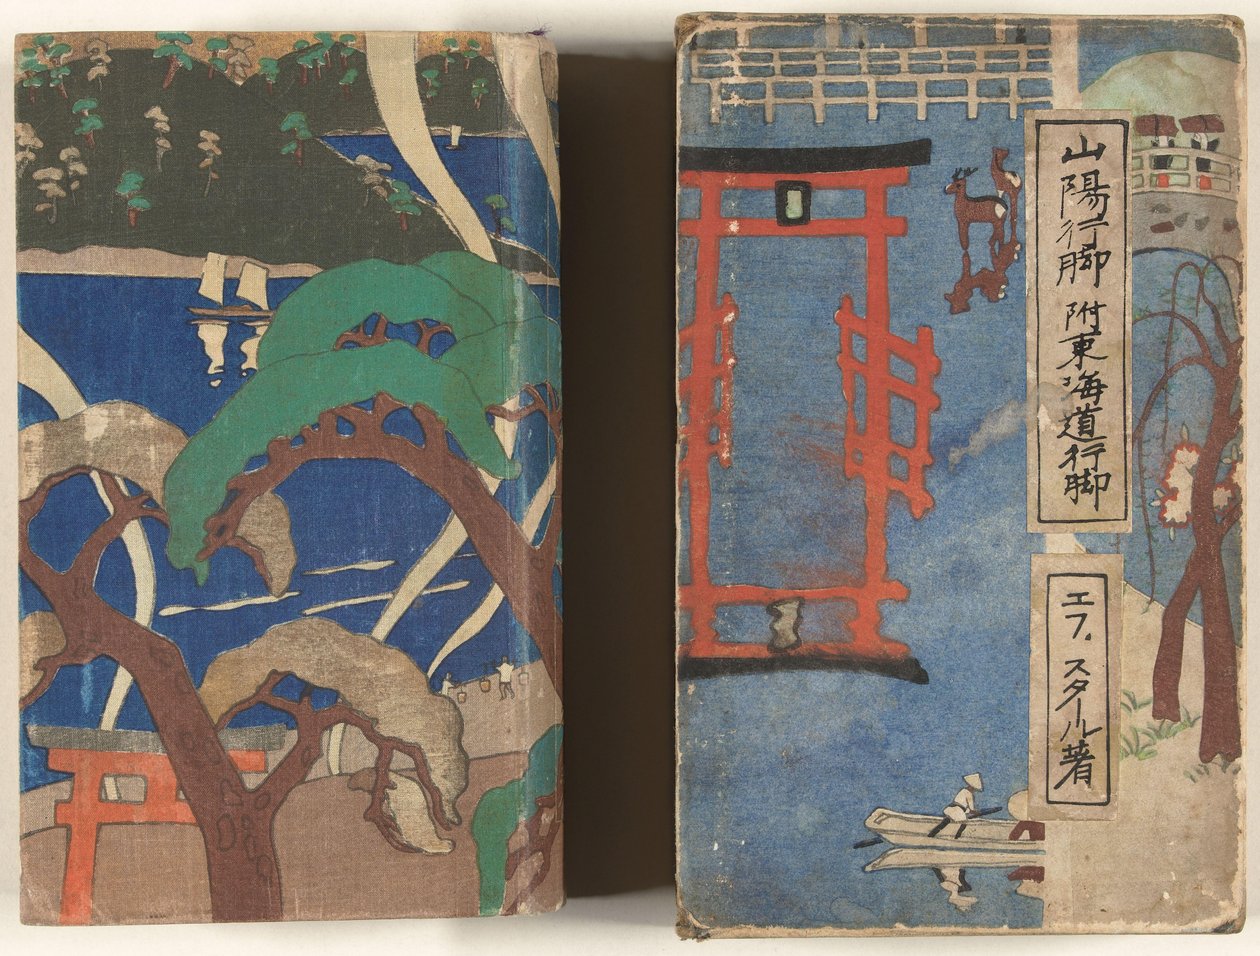 山陽行脚 附東海道行脚
エフ。スタール著